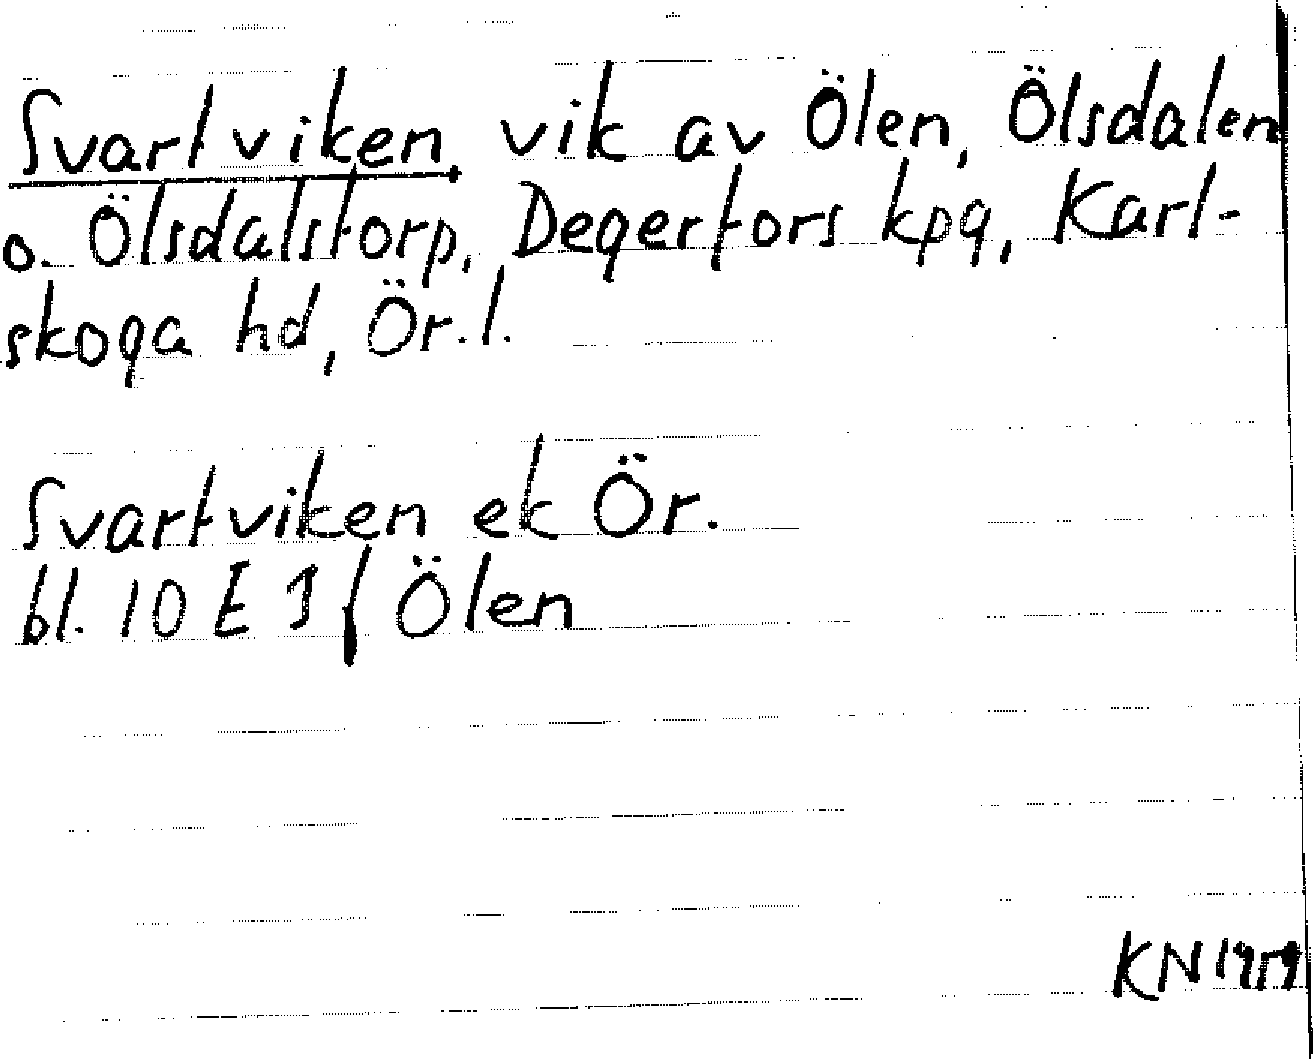 Svartviken, vik av Ölen, Ölsdalen
o. Ölsdalstorp, Degerfors kpg, Karl-
skoga hd, Ör. l.
Svartviken ek Ör.
bl. 10 E 1 f Ölen
KN 1959